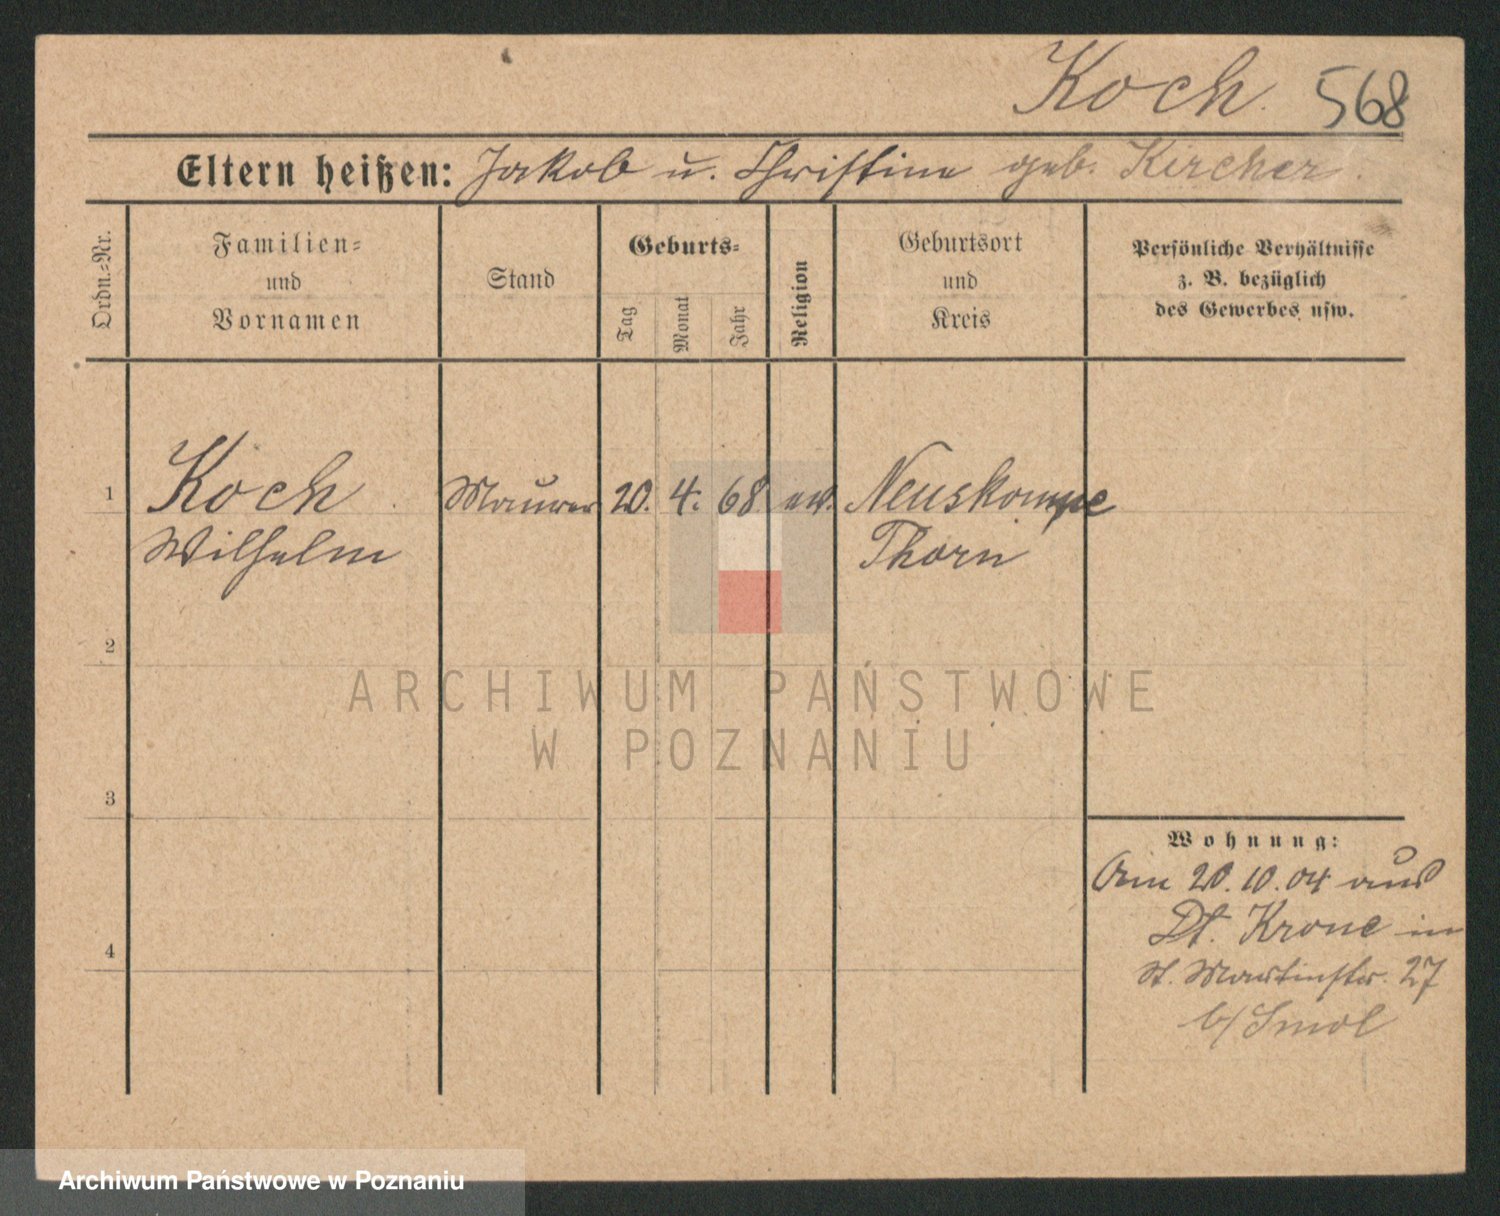 Koch. 568
Eltern heißen: Jakob u. Christine geb. Kircher.
Ordn.=Nr.
Familien=
und
Vornamen
Stand
Geburts=
Tag
Monat
Jahr
Religion
Geburtsort
und
Kreis
Persönliche Verhältnisse
z. B. bezüglich
des Gewerbes usw.
1 Koch Maurer 20. 4. 68 ev. Neuskompe
Wilhelm Thorn
2
ARCHIWUM PAŃSTWOWE
W POZNANIU
3
Wohnung:
Am 20.10.04 aus
Dt. Krone in
4
St. Martinstr. 27
b/Smol
Archiwum Państwowe w Poznaniu